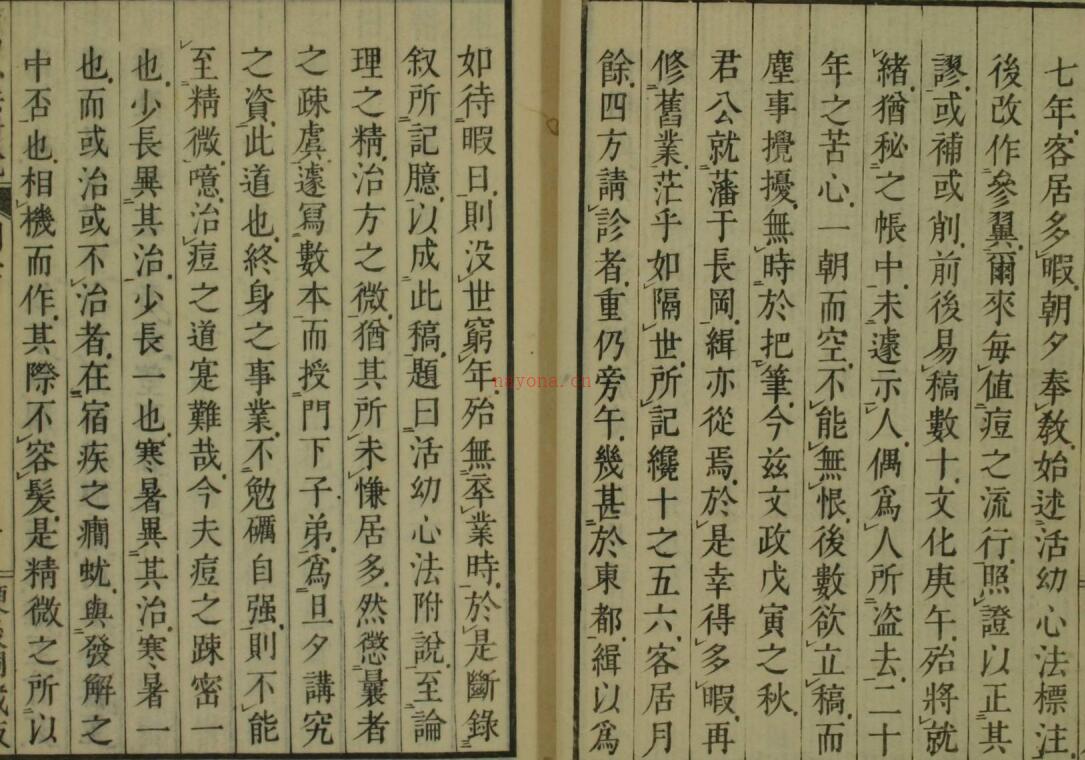 七年客居多暇朝夕奉教始述活幼心法標注
後改作參翼爾來毎値痘之流行照證以正其
謬或補或削前後易稿數十文化庚午殆將就
緒猶秘之帳中未遽示人偶爲人所盜去二十
年之苦心一朝而空不能無恨後數欲立稿而
塵事攪擾無時於把筆今兹文政戊寅之秋
君公就藩于長岡緝亦從焉於是幸得多暇再
修舊業茫乎如隔世所記纔十之五六客居月
餘四方請診者重仍旁午幾甚於東都緝以爲
如待暇日則没世窮年殆無卒業時於是斷錄
叙所記臆以成此稿題曰活幼心法附説至論
理之精治方之微猶其所未慊居多然懲曩者
之疎虞遽冩數本而授門下子弟爲旦夕講究
之資此道也終身之事業不勉礪自强則不能
至精微噫治痘之道寔難哉今夫痘之踈密一
也少長異其治少長一也寒暑異其治寒暑一
也而或治或不治者在宿疾之癎蚘與發解之
中否也相機而作其際不容髮是精微之所以
nayona.cn